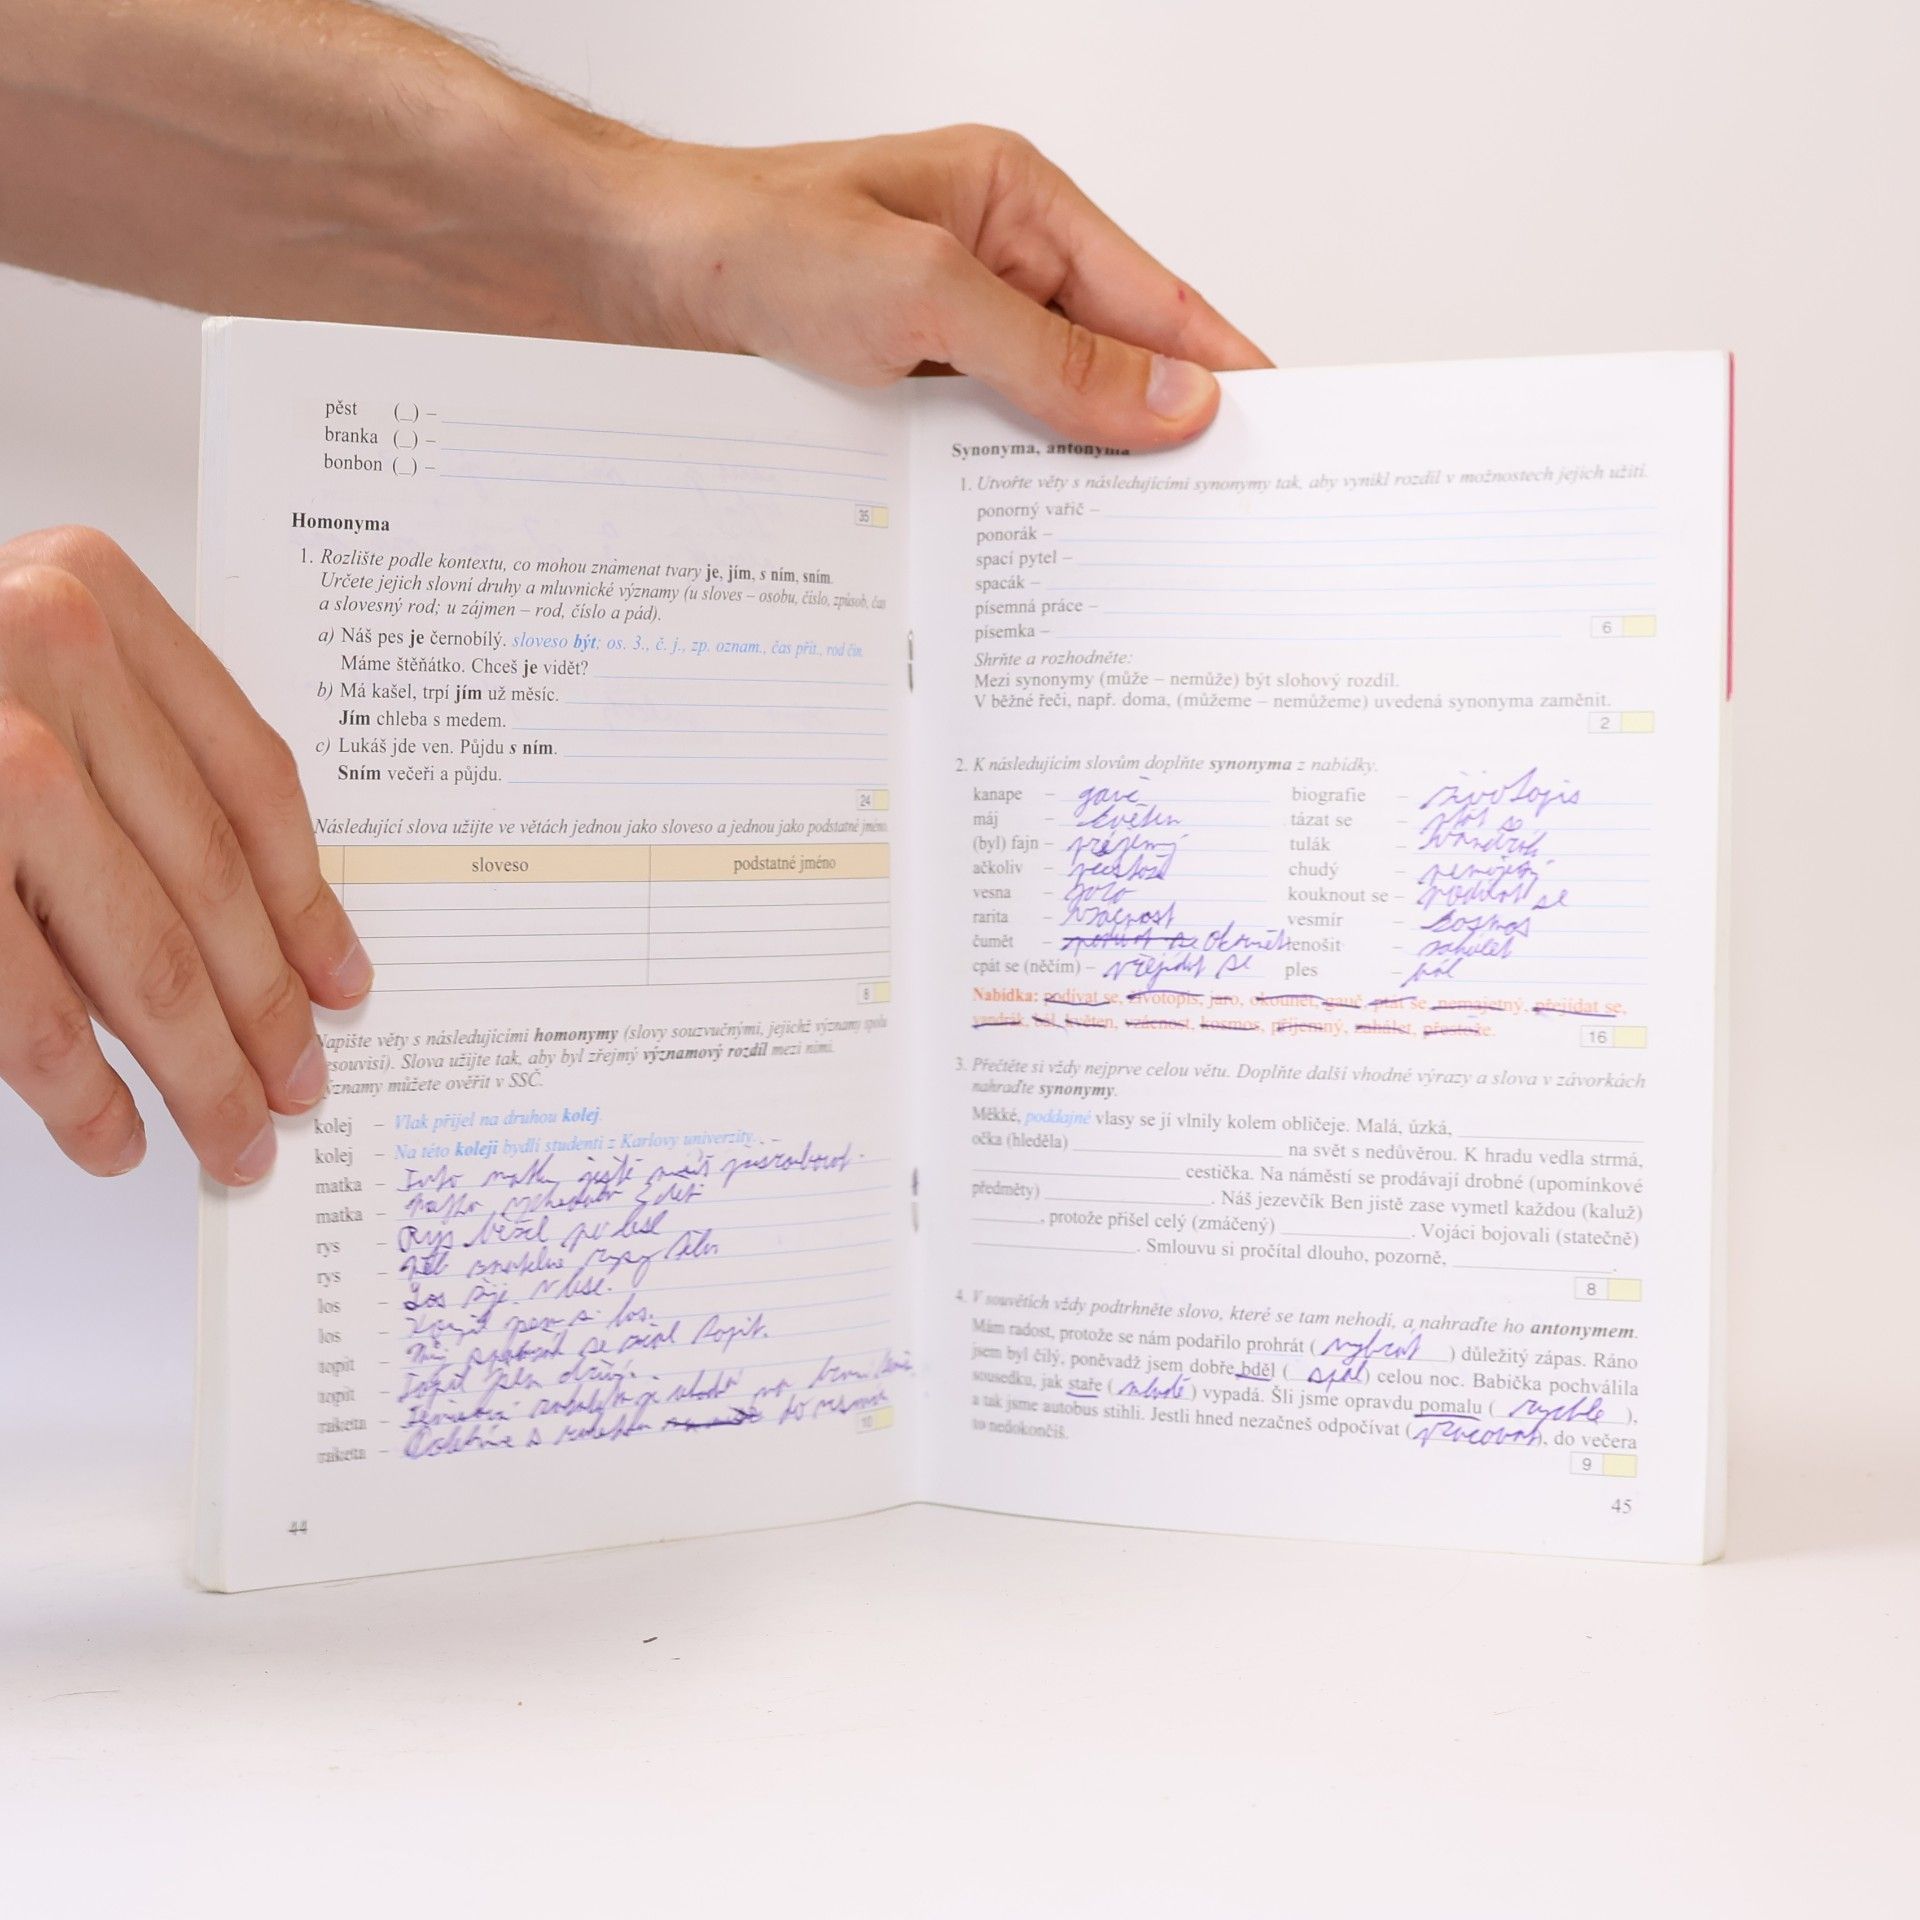 pěst (_) –
branka (_) –
bonbon (_) –
35
Homonyma
1. Rozlište podle kontextu, co mohou znamenat tvary je, jím, s ním, sním.
Určete jejich slovní druhy a mluvnické významy (u sloves – osobu, číslo, způsob, čas
a slovesný rod; u zájmen – rod, číslo a pád).
a) Náš pes je černobílý. sloveso být; os. 3., č. j., zp. oznam., čas přít., rod čin.
Máme štěňátko. Chceš je vidět?
b) Má kašel, trpí jím už měsíc.
Jím chleba s medem.
c) Lukáš jde ven. Půjdu s ním.
Sním večeři a půjdu.
24
Následující slova užijte ve větách jednou jako sloveso a jednou jako podstatné jméno.
sloveso podstatné jméno
8
Napište věty s následujícími homonymy (slovy souzvučnými, jejichž významy spolu
nesouvisí). Slova užijte tak, aby byl zřejmý významový rozdíl mezi nimi.
Významy můžete ověřit v SSČ.
kolej – Vlak přijel na druhou kolej.
kolej – Na této koleji bydlí studenti z Karlovy univerzity.
matka –
matka –
rys – Rys běžel po lese
rys – rysy
los – Los žije v lese.
los – Koupil jsem si los.
topit – Můj se topit.
topit – Topil jsem
raketa –
raketa – s do
10
44
Synonyma, antonyma
1. Utvořte věty s následujícími synonymy tak, aby vynikl rozdíl v možnostech jejich užití.
ponorný vařič –
ponorák –
spací pytel –
spacák –
písemná práce –
písemka –
6
Shrňte a rozhodněte:
Mezi synonymy (může – nemůže) být slohový rozdíl.
V běžné řeči, např. doma, (můžeme – nemůžeme) uvedená synonyma zaměnit.
2
2. K následujícím slovům doplňte synonyma z nabídky.
kanape – gauč biografie – životopis
máj – květen tázat se – ptát se
(byl) fajn – příjemný tulák – vandrák
ačkoliv – přestože chudý – nemajetný
vesna – jaro kouknout se – podívat se
rarita – vzácnost vesmír – kosmos
čumět – podívat se okounět lenošit – zahálet
cpát se (něčím) – přejídat se ples – bál
Nabídka: podívat se, životopis, jaro, okounět, gauč, ptát se, nemajetný, přejídat se,
vandrák, bál, květen, vzácnost, kosmos, příjemný, zahálet, přestože.
16
3. Přečtěte si vždy nejprve celou větu. Doplňte další vhodné výrazy a slova v závorkách
nahraďte synonymy.
Měkké, poddajné vlasy se jí vlnily kolem obličeje. Malá, úzká,
očka (hleděla) na svět s nedůvěrou. K hradu vedla strmá,
cestička. Na náměstí se prodávají drobné (upomínkové
předměty) . Náš jezevčík Ben jistě zase vymetl každou (kaluž)
, protože přišel celý (zmáčený) . Vojáci bojovali (statečně)
. Smlouvu si pročítal dlouho, pozorně, .
8
4. V souvětích vždy podtrhněte slovo, které se tam nehodí, a nahraďte ho antonymem.
Mám radost, protože se nám podařilo prohrát ( vyhrát ) důležitý zápas. Ráno
jsem byl čilý, poněvadž jsem dobře bděl ( spal ) celou noc. Babička pochválila
sousedku, jak staře ( mladě ) vypadá. Šli jsme opravdu pomalu ( rychle ),
a tak jsme autobus stihli. Jestli hned nezačneš odpočívat ( pracovat ), do večera
to nedokončíš.
9
45